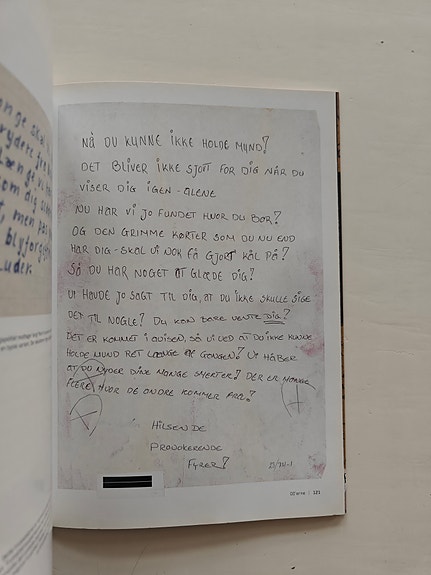 NÅ DU KUNNE IKKE HOLDE MUND?
DET BLIVER IKKE SJOFT FOR DIG NÅR DU
VISER DIG IGEN - ALENE
NU HAR VI JO FUNDET HVOR DU BOR?
OG DEN GRIMME KØRTER SOM DU NU END
HAR DIG - SKAL VI NOK FÅ GJORT KÅL PÅ?
SÅ DU HAR NOGET AT GLÆDE DIG?
VI HAVDE JO SAGT TIL DIG, AT DU IKKE SKULLE SIGE
DET TIL NOGLE? DU KAN BARE VENTE DIG?
DET ER KOMMET I AVISEN, SÅ VI VED AT DU IKKE KUNNE
HOLDE MUND RET LÆNGE AF GANGEN? VI HÅBER
AT DU NYDER DINE MANGE SMERTER? DER ER MANGE
FLERE HVOR DE ANDRE KOMMER FRA?
HILSEN DE
PROVOKERENDE
FYRER?
DJ'erne | 121
nge skal
men pas
blyforgift
Luder